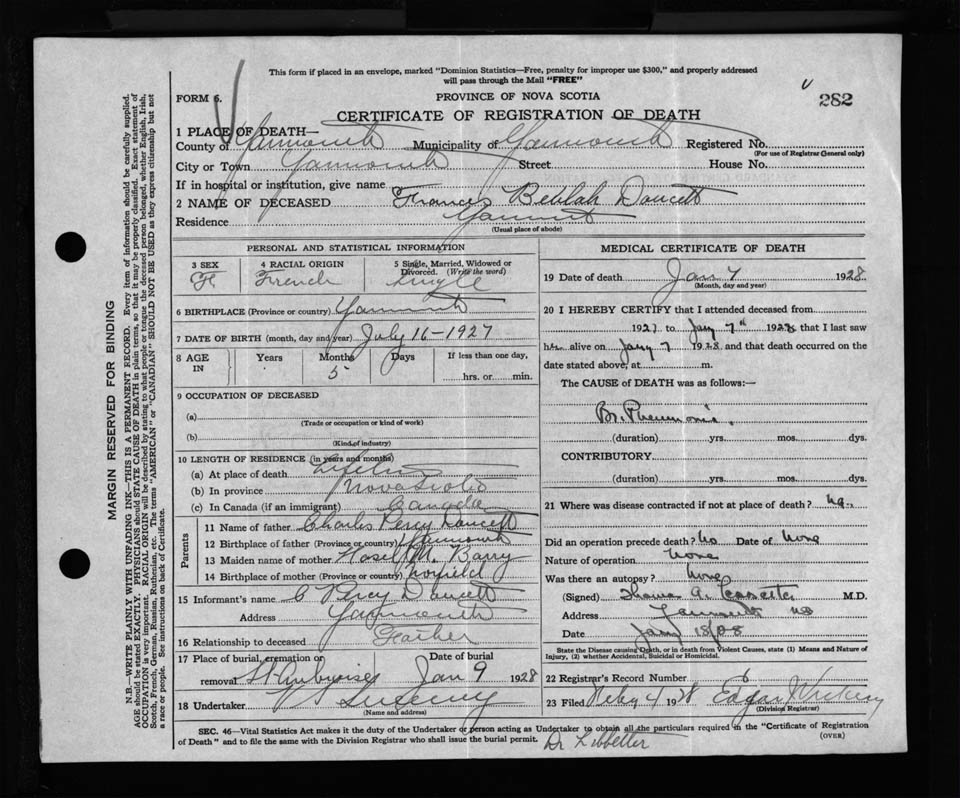 This form if placed in an envelope, marked "Dominion Statistics—Free, penalty for improper use $300," and properly addressed
will pass through the Mail "FREE"
FORM 6.
PROVINCE OF NOVA SCOTIA
282
CERTIFICATE OF REGISTRATION OF DEATH
1 PLACE OF DEATH—
County of Yarmouth Municipality of Yarmouth Registered No.
(For use of Registrar General only)
City or Town Yarmouth Street House No.
If in hospital or institution, give name
2 NAME OF DECEASED Frances Beulah Doucett
Residence Yarmouth
(Usual place of abode)
PERSONAL AND STATISTICAL INFORMATION
3 SEX 4 RACIAL ORIGIN 5 Single, Married, Widowed or
Divorced. (Write the word)
F French Single
6 BIRTHPLACE (Province or country) Yarmouth
7 DATE OF BIRTH (month, day and year) July 16-1927
8 AGE IN Years Months Days If less than one day,
5 hrs. or min.
9 OCCUPATION OF DECEASED
(a)
(Trade or occupation or kind of work)
(b)
(Kind of industry)
10 LENGTH OF RESIDENCE (in years and months)
(a) At place of death
(b) In province Nova Scotia
(c) In Canada (if an immigrant) Canada
Parents
11 Name of father Charles Percy Doucett
12 Birthplace of father (Province or country) Yarmouth
13 Maiden name of mother Hasel M. Barry
14 Birthplace of mother (Province or country)
15 Informant's name C Percy Doucett
Address Yarmouth
16 Relationship to deceased Father
17 Place of burial, cremation or Date of burial
removal St Ambroises Jan 9 1928
18 Undertaker
(Name and address)
MEDICAL CERTIFICATE OF DEATH
19 Date of death Jan 7 1928
(Month, day and year)
20 I HEREBY CERTIFY that I attended deceased from
1927 to Jany 7th 1928 that I last saw
her alive on Jany 7 1928 and that death occurred on the
date stated above, at m.
The CAUSE of DEATH was as follows:—
Br. Pneumonia
(duration) yrs. mos. dys.
CONTRIBUTORY
(duration) yrs. mos. dys.
21 Where was disease contracted if not at place of death? no
Did an operation precede death? No Date of None
Nature of operation None
Was there an autopsy? None
(Signed) Thomas A. M.D.
Address Yarmouth NS
Date Jany 18/08
State the Disease causing Death, or in death from Violent Causes, state (1) Means and Nature of
Injury, (2) whether Accidental, Suicidal or Homicidal.
22 Registrar's Record Number
23 Filed Feby 4 1928 Edgar
(Division Registrar)
SEC. 46—Vital Statistics Act makes it the duty of the Undertaker or person acting as Undertaker to obtain all the particulars required in the "Certificate of Registration
of Death" and to file the same with the Division Registrar who shall issue the burial permit.
(OVER)
Dr Lebbetter
MARGIN RESERVED FOR BINDING
N.B.—WRITE PLAINLY WITH UNFADING INK—THIS IS A PERMANENT RECORD. Every item of information should be carefully supplied.
AGE should be stated EXACTLY. PHYSICIANS should STATE CAUSE OF DEATH in plain terms, so that it may be properly classified. Exact statement of
OCCUPATION is very important. RACIAL ORIGIN will be described by stating to what people or tongue the deceased person belonged, whether English, Irish,
Scotch, French, German, Russian, Ruthenian, etc. The terms "AMERICAN" or "CANADIAN" SHOULD NOT BE USED as they express citizenship but not
a race or people. See instructions on back of Certificate.